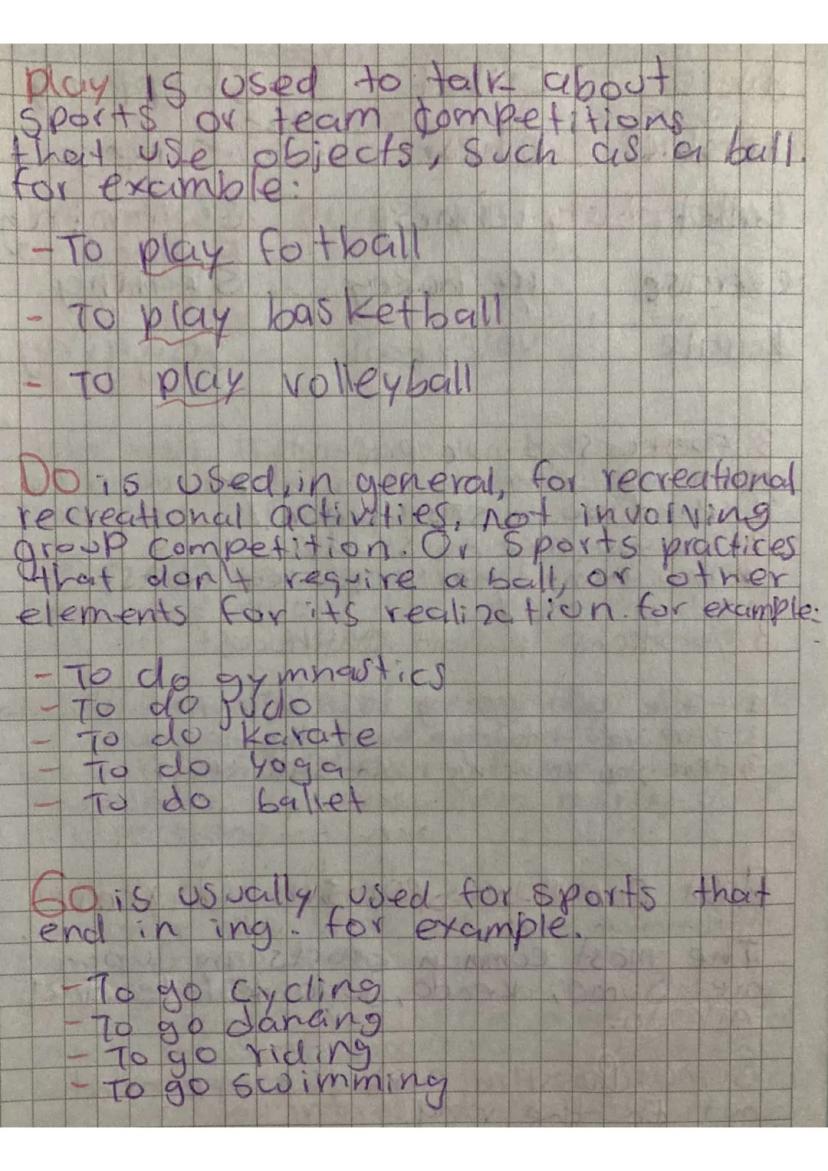 Play is used to talk about
sports or team competitions
that use objects, such as a ball.
for examble:
- To play fotball
- To play basketball
- To play volleyball
Do is used, in general, for recreational
recreational activities, not involving
group competition. Or sports practices
that don't require a ball, or other
elements for its realization. for example:
- To do gymnastics
- To do judo
- To do karate
- To do yoga
- To do ballet
Go is usually used for sports that
end in ing. for example.
- To go cycling
- To go dancing
- To go riding
- To go swimming